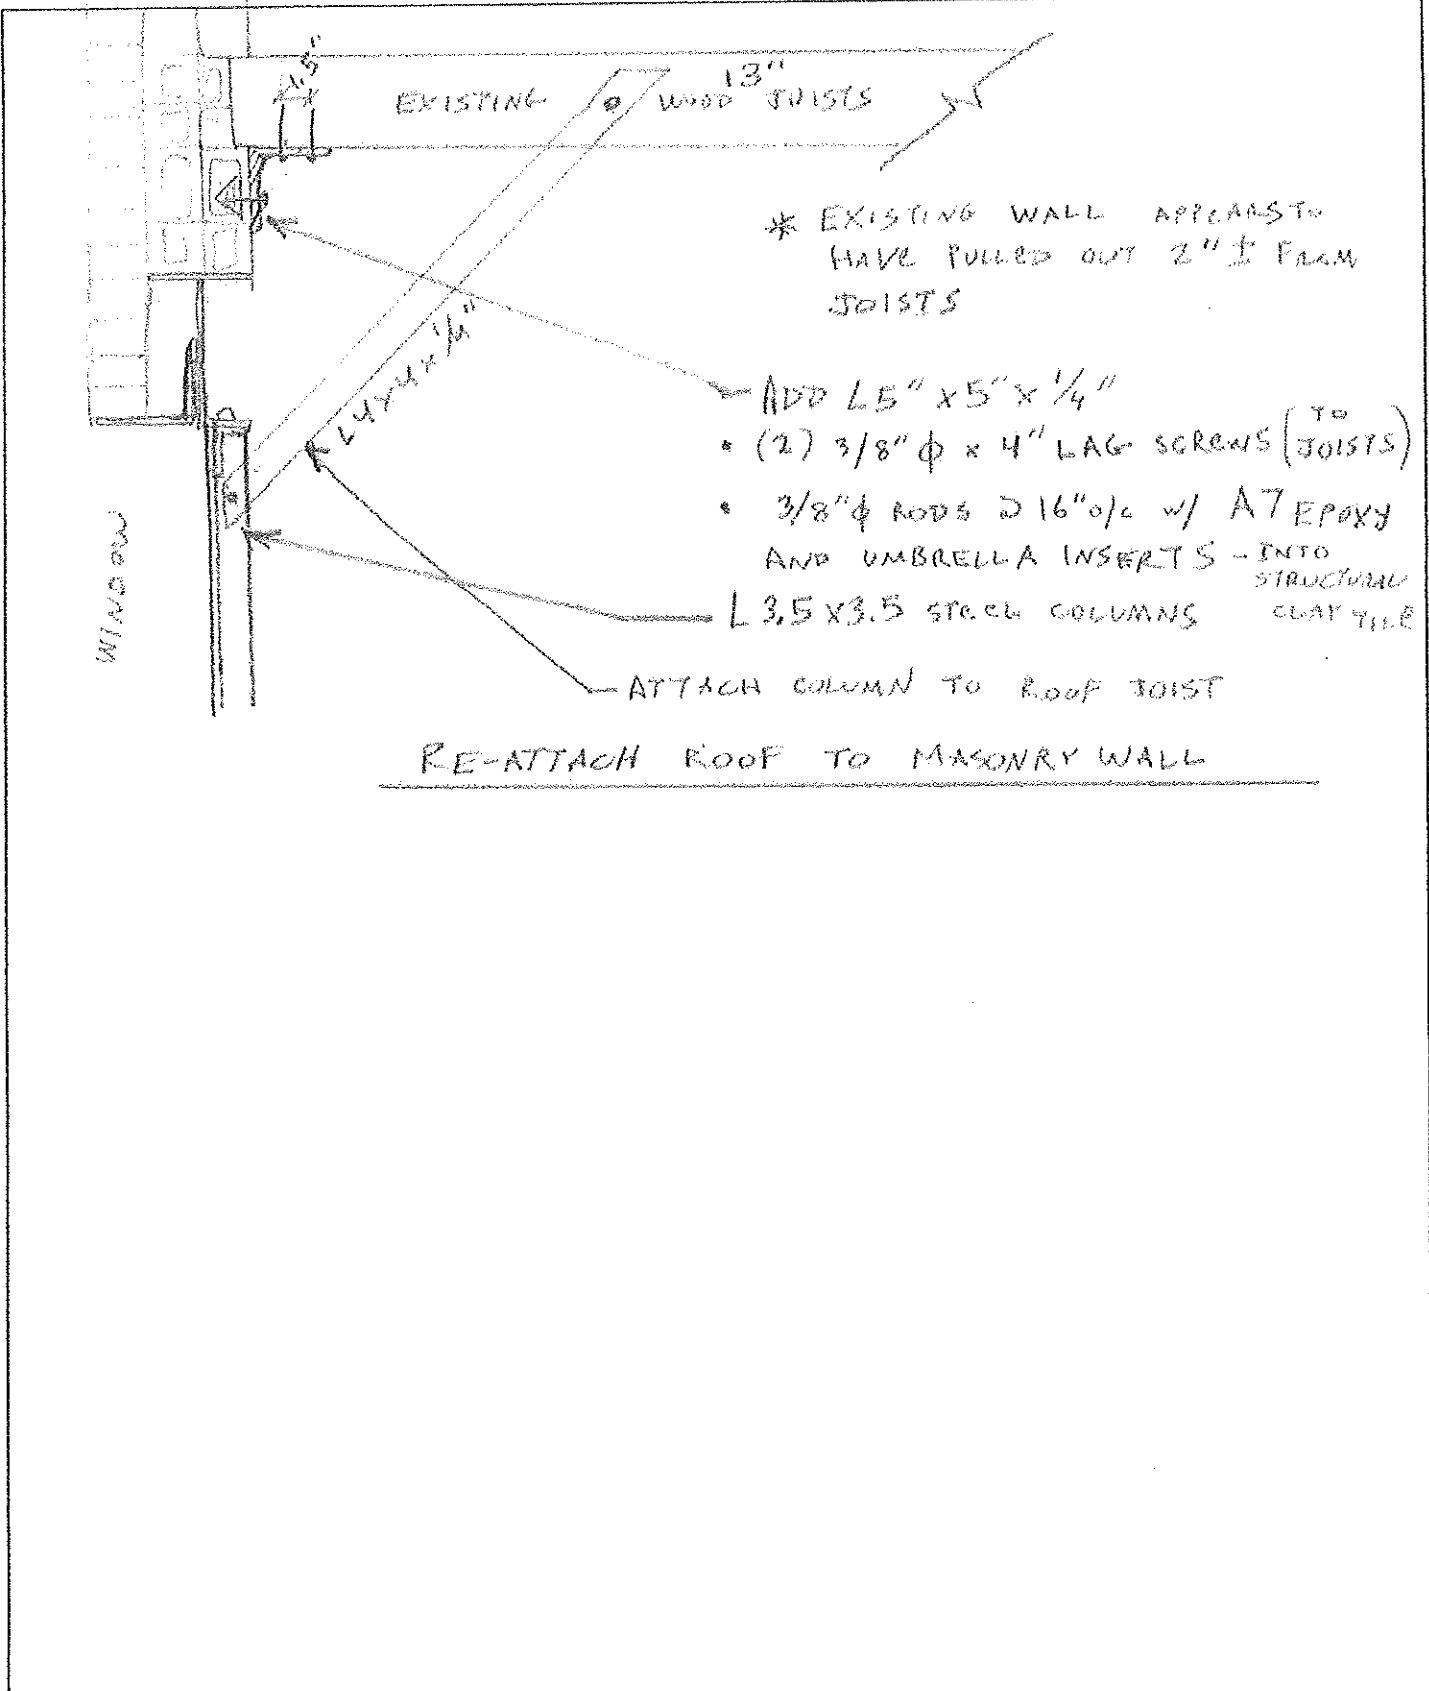 1.5"
13"
EXISTING WOOD JOISTS
* EXISTING WALL APPEARS TO
HAVE PULLED OUT 2" ± FROM
JOISTS
L4x4x1/4"
ADD L5" x 5" x 1/4"
• (2) 3/8" ϕ x 4" LAG SCREWS (TO JOISTS)
• 3/8" ϕ RODS @ 16" o/c w/ A7 EPOXY
AND UMBRELLA INSERTS - INTO
STRUCTURAL
CLAY TILE
L 3.5 x 3.5 STEEL COLUMNS
WINDOW
ATTACH COLUMN TO ROOF JOIST
RE-ATTACH ROOF TO MASONRY WALL